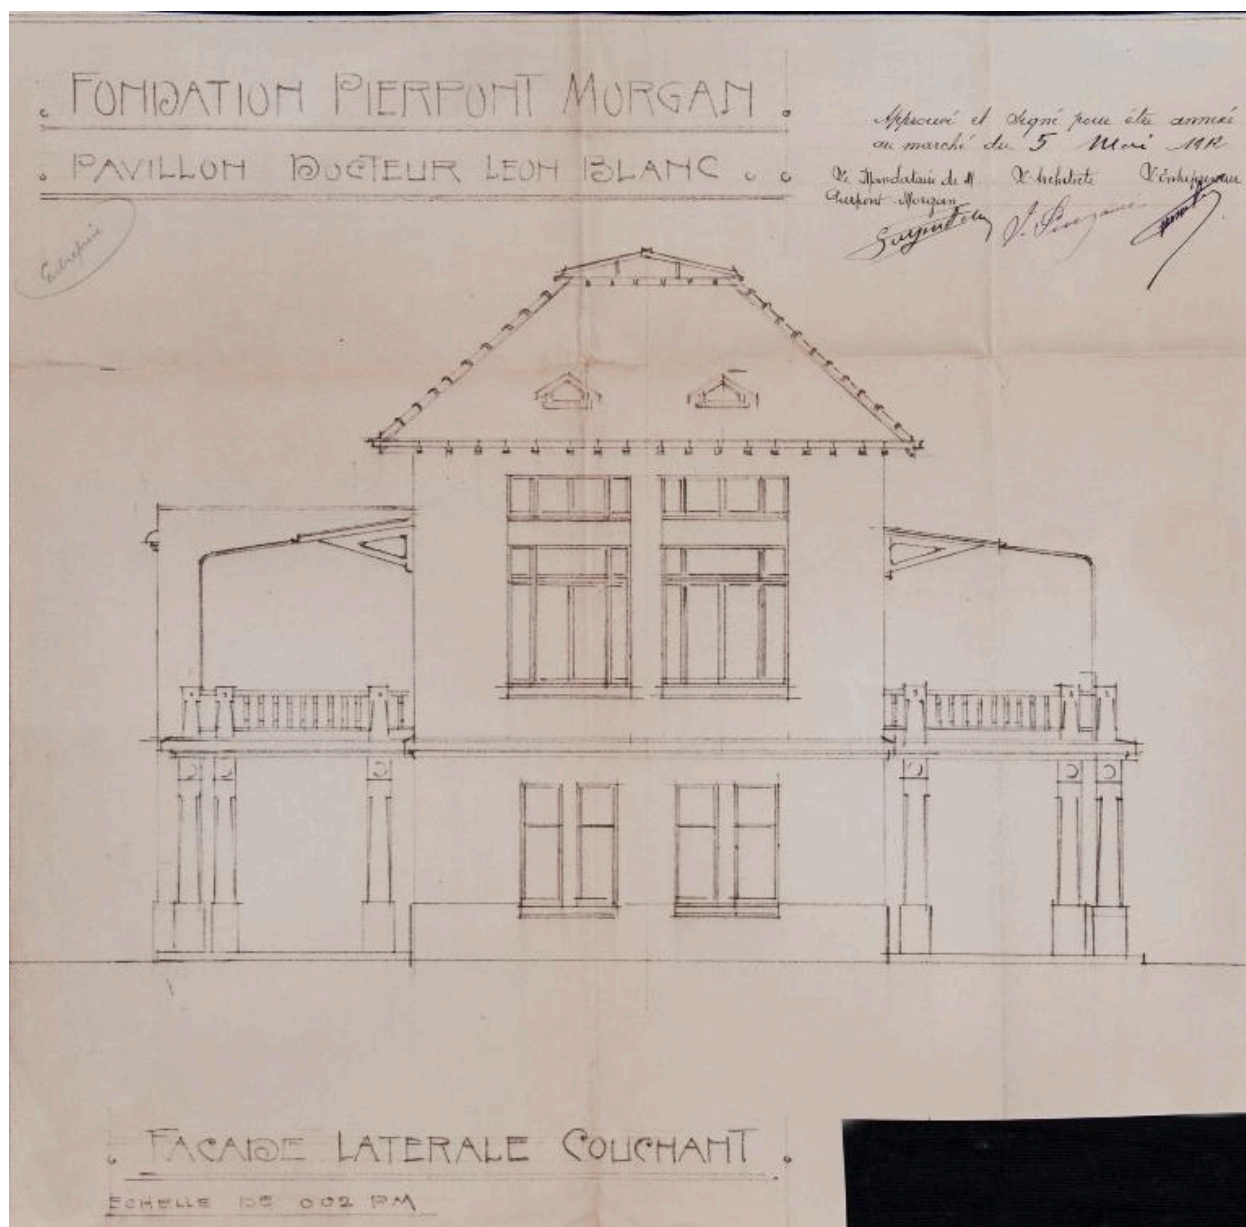 FONDATION PIERPONT MORGAN
PAVILLON DOCTEUR LEON BLANC
Approuvé et signé pour être annexé
au marché du 5 Mai 1912
Le Mandataire de M Pierpont Morgan
L'Architecte
L'Entrepreneur
Entreprise
FACADE LATERALE COUCHANT
ECHELLE DE 0.02 P.M